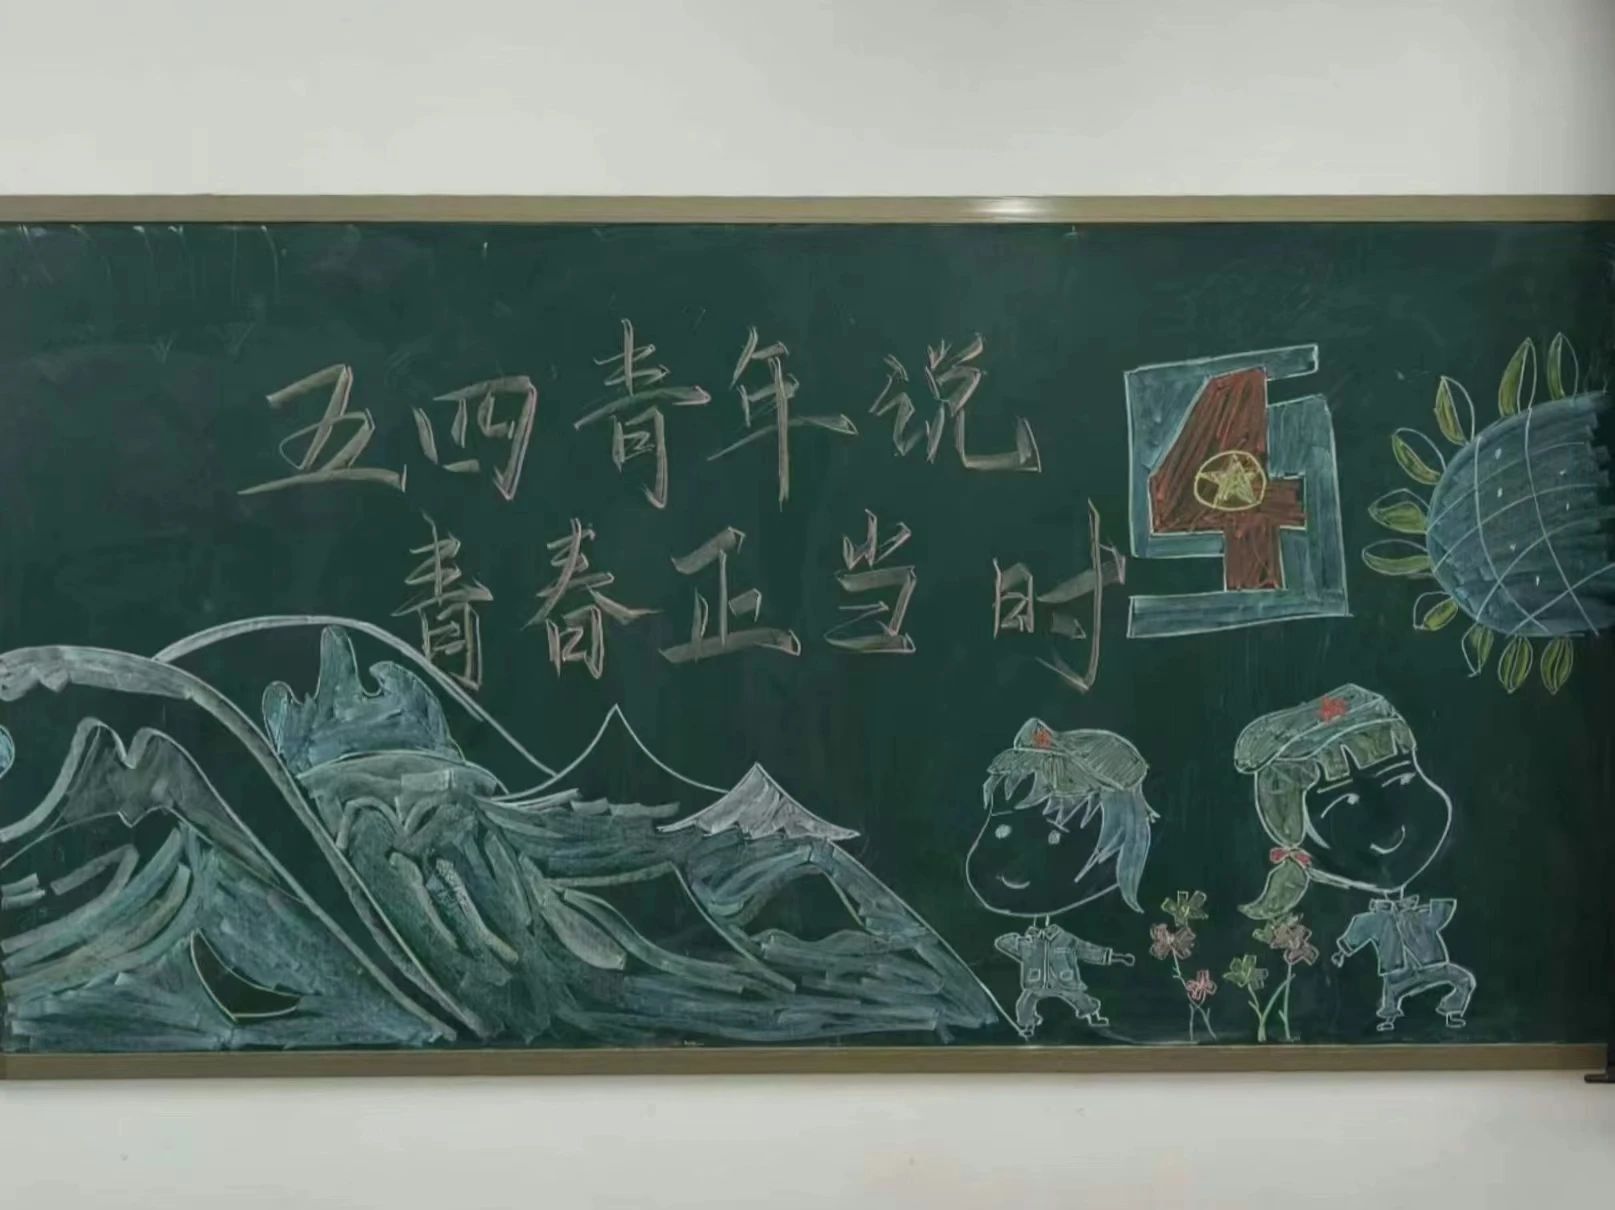 五四青年说
青春正当时
54